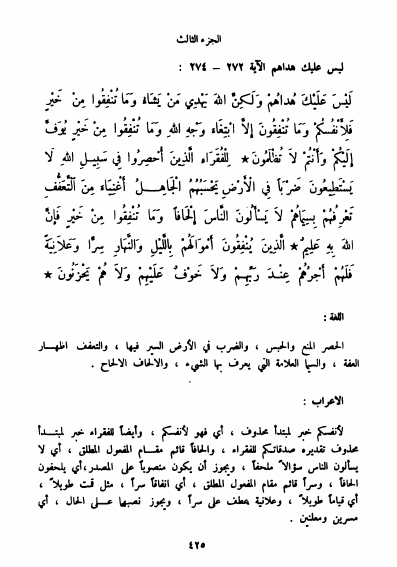 الجزء الثالث
ليس عليك هداهم الآية ٢٧٢ – ٢٧٤ :
لَيْسَ عَلَيْكَ هُدَاهُمْ وَلَكِنَّ اللهَ يَهْدِي مَنْ يَشَاءُ وَمَا تُنْفِقُوا مِنْ خَيْرٍ
فَلِأَنْفُسِكُمْ وَمَا تُنْفِقُونَ إِلَّا ابْتِغَاءَ وَجْهِ اللهِ وَمَا تُنْفِقُوا مِنْ خَيْرٍ يُوَفَّ
إِلَيْكُمْ وَأَنْتُمْ لَا تُظْلَمُونَ ★ لِلْفُقَرَاءِ الَّذِينَ أُحْصِرُوا فِي سَبِيلِ اللهِ لَا
يَسْتَطِيعُونَ ضَرْبًا فِي الْأَرْضِ يَحْسَبُهُمُ الْجَاهِلُ أَغْنِيَاءَ مِنَ التَّعَفُّفِ
تَعْرِفُهُمْ بِسِيمَاهُمْ لَا يَسْأَلُونَ النَّاسَ إِلْحَافًا وَمَا تُنْفِقُوا مِنْ خَيْرٍ فَإِنَّ
اللهَ بِهِ عَلِيمٌ ★ الَّذِينَ يُنْفِقُونَ أَمْوَالَهُمْ بِاللَّيْلِ وَالنَّهَارِ سِرًّا وَعَلَانِيَةً
فَلَهُمْ أَجْرُهُمْ عِنْدَ رَبِّهِمْ وَلَا خَوْفٌ عَلَيْهِمْ وَلَا هُمْ يَحْزَنُونَ ★
اللغة :
الحصر المنع والحبس ، والضرب في الأرض السير فيها ، والتعفف اظهار
العفة ، والسيما العلامة التي يعرف بها الشيء ، والالحاف الالحاح .
الأعراب :
لأنفسكم خبر لمبتدأ محذوف ، أي فهو لأنفسكم ، وأيضاً للفقراء خبر لمبتدأ
محذوف تقديره صدقاتكم للفقراء ، والحافاً قائم مقام المفعول المطلق ، أي لا
يسألون الناس سؤالاً ملحفاً ، ويجوز أن يكون منصوباً على المصدر،أي يلحفون
الحافاً ، وسراً قائم مقام المفعول المطلق ، أي انفاقاً سراً ، مثل قمت طويلاً ،
أي قياماً طويلاً ، وعلانية عطف على سراً ، ويجوز نصبها على الحال ، أي
مسرين ومعلنين .
٤٢٥